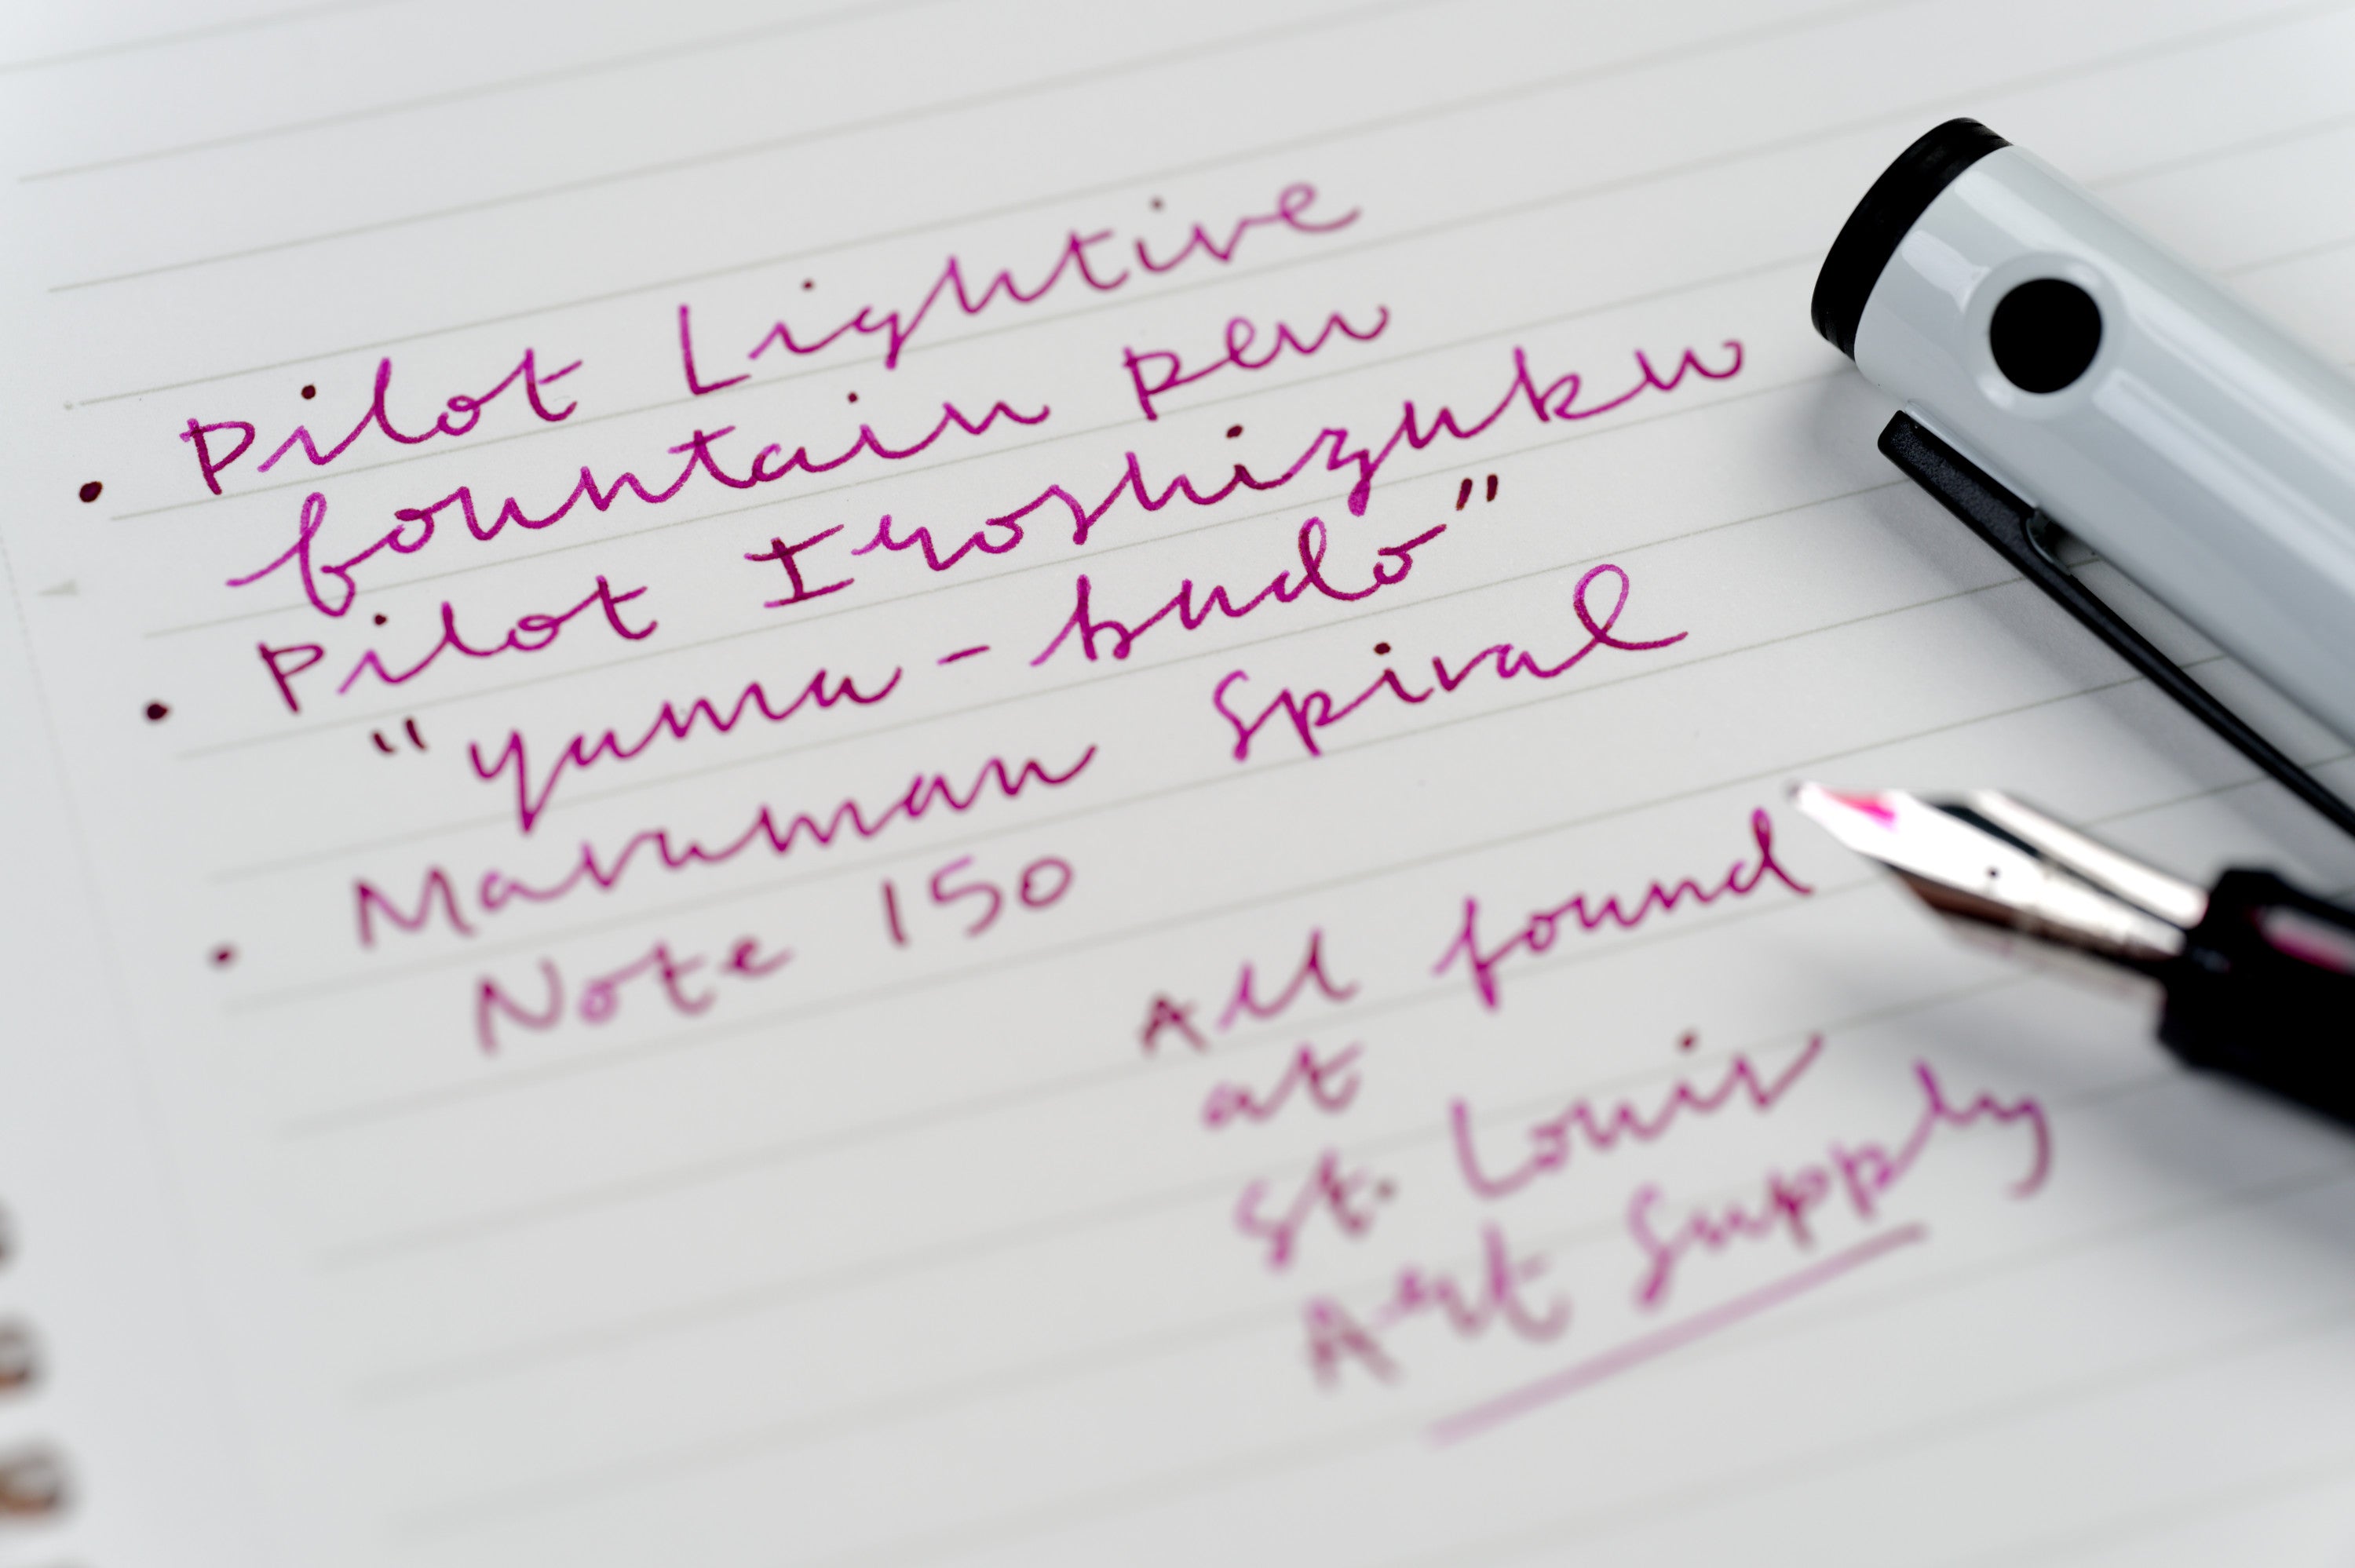 • Pilot Lightive
fountain pen
• Pilot Iroshizuku
"yama-budo"
• Maruman Spiral
Note 150
All found
at
St. Louis
Art Supply